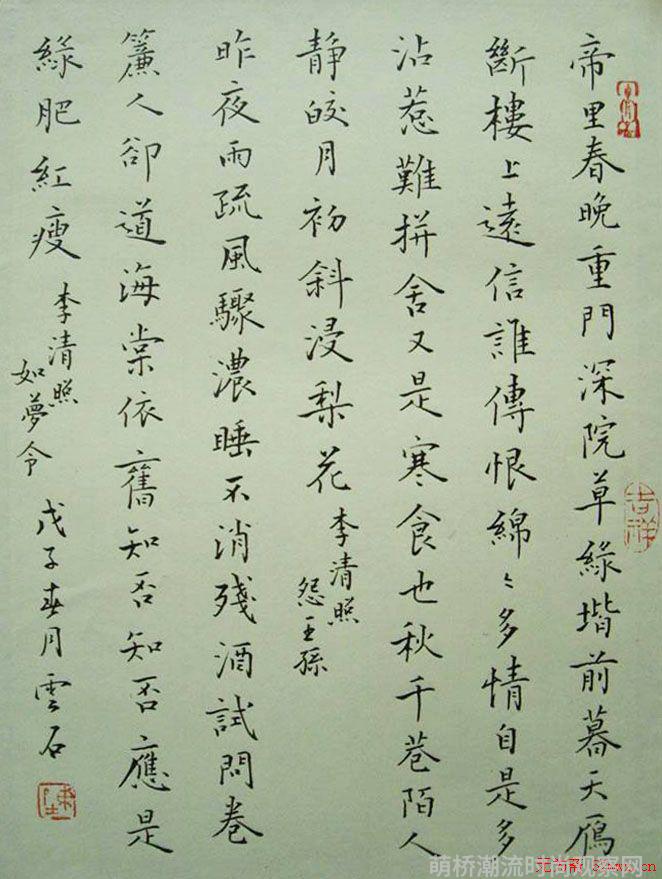 帝里春晚重門深院草緑堦前暮天鴈
斷樓上遠信誰傳恨綿〻多情自是多
沾惹難拼舍又是寒食也秋千巷陌人
静皎月初斜浸梨花
李清照
怨王孫
昨夜雨疏風驟濃睡不消殘酒試問卷
簾人卻道海棠依舊知否知否應是
緑肥紅瘦
李清照
如夢令
戊子春月雲石
吉祥
萌桥潮流时尚观察网